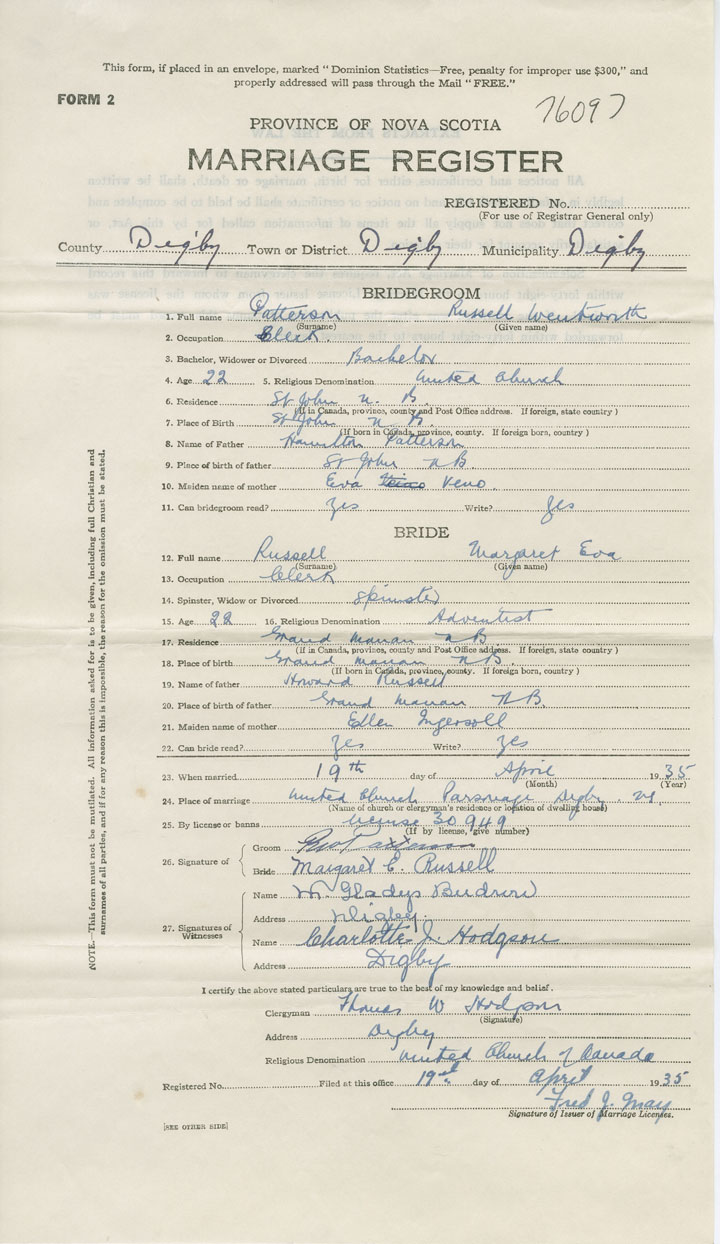 This form, if placed in an envelope, marked "Dominion Statistics—Free, penalty for improper use $300," and
properly addressed will pass through the Mail "FREE."
FORM 2
76097
PROVINCE OF NOVA SCOTIA
MARRIAGE REGISTER
REGISTERED No.
(For use of Registrar General only)
County Digby Town or District Digby Municipality Digby
BRIDEGROOM
1. Full name Patterson Russell Wentworth
(Surname) (Given name)
2. Occupation Clerk
3. Bachelor, Widower or Divorced Bachelor
4. Age 22 5. Religious Denomination United Church
6. Residence St John N. B.
(If in Canada, province, county and Post Office address. If foreign, state country)
7. Place of Birth St John N. B.
(If born in Canada, province, county. If foreign born, country)
8. Name of Father Hamilton Patterson
9. Place of birth of father St John N B
10. Maiden name of mother Eva Veno
11. Can bridegroom read? Yes Write? Yes
BRIDE
12. Full name Russell Margaret Eva
(Surname) (Given name)
13. Occupation Clerk
14. Spinster, Widow or Divorced Spinster
15. Age 22 16. Religious Denomination Adventist
17. Residence Grand Manan N B.
(If in Canada, province, county and Post Office address. If foreign, state country)
18. Place of birth Grand Manan N B.
(If born in Canada, province, county. If foreign born, country)
19. Name of father Howard Russell
20. Place of birth of father Grand Manan N B.
21. Maiden name of mother Ellen Ingersoll
22. Can bride read? Yes Write? Yes
23. When married 19th day of April 1935
(Month) (Year)
24. Place of marriage United Church Parsonage Digby. NS
(Name of church or clergyman's residence or location of dwelling house)
25. By license or banns license 30949
(If by license, give number)
26. Signature of
Groom Patterson
Bride Margaret E. Russell
27. Signatures of Witnesses
Name Gladys
Address Digby.
Name Charlotte J. Hodgson
Address Digby
I certify the above stated particulars are true to the best of my knowledge and belief.
Clergyman Thomas W Hodgson
(Signature)
Address Digby
Religious Denomination United Church of Canada
Registered No. Filed at this office 19th day of April 1935
Fred J. May
Signature of Issuer of Marriage Licenses.
[SEE OTHER SIDE]
NOTE.—This form must not be mutilated. All information asked for is to be given, including full Christian and
surnames of all parties, and if for any reason this is impossible, the reason for the omission must be stated.